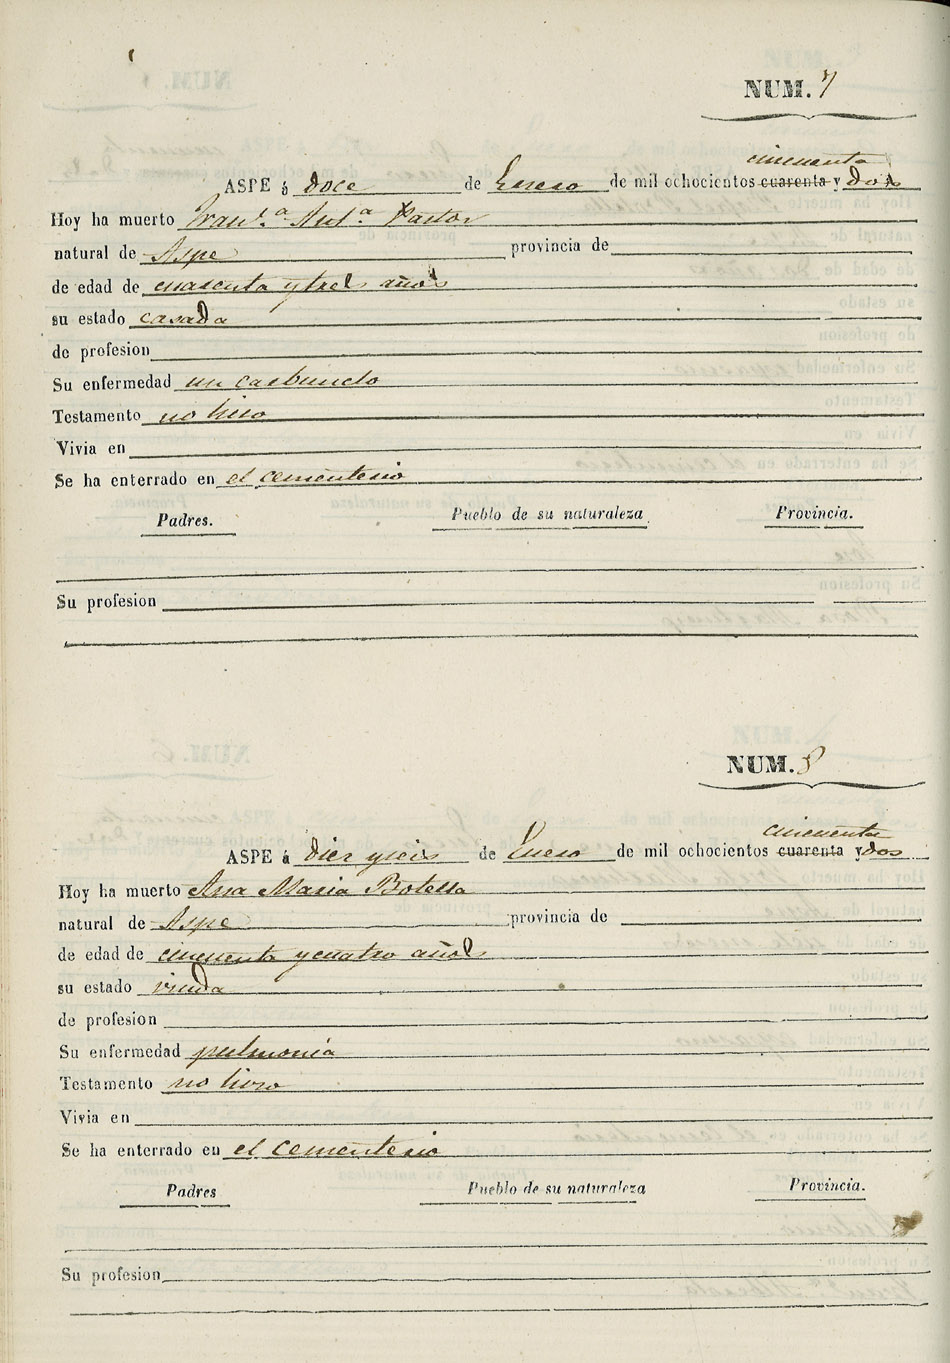 NUM. 7
cincuenta
ASPE á doce de Enero de mil ochocientos cuarenta y dos
Hoy ha muerto Fran.ᶜᵃ Ant.ᵃ Pastor
natural de Aspe provincia de
de edad de cuarenta y tres años
su estado casada
de profesion
Su enfermedad un carbunclo
Testamento no hiso
Vivia en
Se ha enterrado en el cementerio
Padres. Pueblo de su naturaleza Provincia.
Su profesion
NUM. 8
cincuenta
ASPE á diez y seis de Enero de mil ochocientos cuarenta y dos
Hoy ha muerto Ana Maria Botella
natural de Aspe provincia de
de edad de cincuenta y cuatro años
su estado viuda
de profesion
Su enfermedad pulmonia
Testamento no hiso
Vivia en
Se ha enterrado en el cementerio
Padres Pueblo de su naturaleza Provincia.
Su profesion